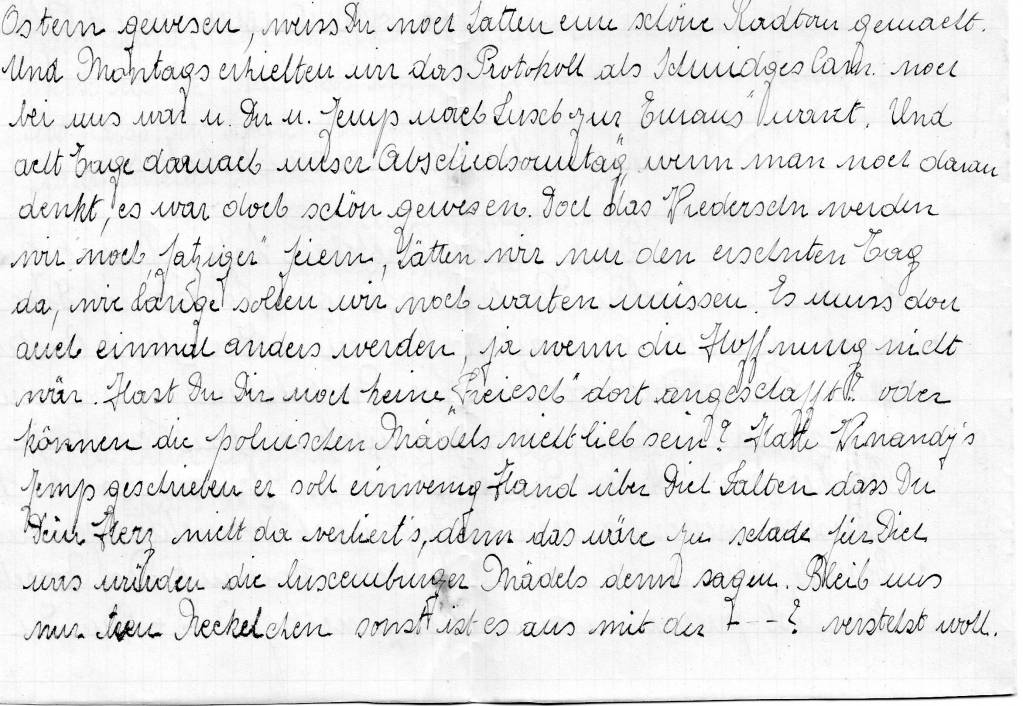 Ostern gewesen, weiss Du noch hatten eine schöne Radtour gemacht.
Und Montags erhielten wir das Protokoll als Schmidges Cam. noch
bei uns war u. Du u. Jemp nach zur "Emaus" warst. Und
acht Tage darnach unser Abschiedsonntag, wenn man noch daran
denkt, es war doch schön gewesen. Doch das Wiedersehn werden
wir noch "fatziger" feiern, hätten wir nur den ersehnten Tag
da, wie lange sollen wir noch warten müssen. Es muss doch
auch einmal anders werden, ja wenn die Hoffnung nicht
wär. Hast Du Dir noch keine "Freiesch" dort angeschafft? oder
können die polnischen Mädels nicht lieb sein? Hatte Winandy's
Jemp geschrieben er soll einwenig Hand über Dich halten dass Du
Dein Herz nicht da verliert's, denn das wäre zu schade für Dich
was würden die luxemburger Mädels denn sagen. Bleib uns
nur treu Neckelchen sonst ist es aus mit der F---? verstehst woll.